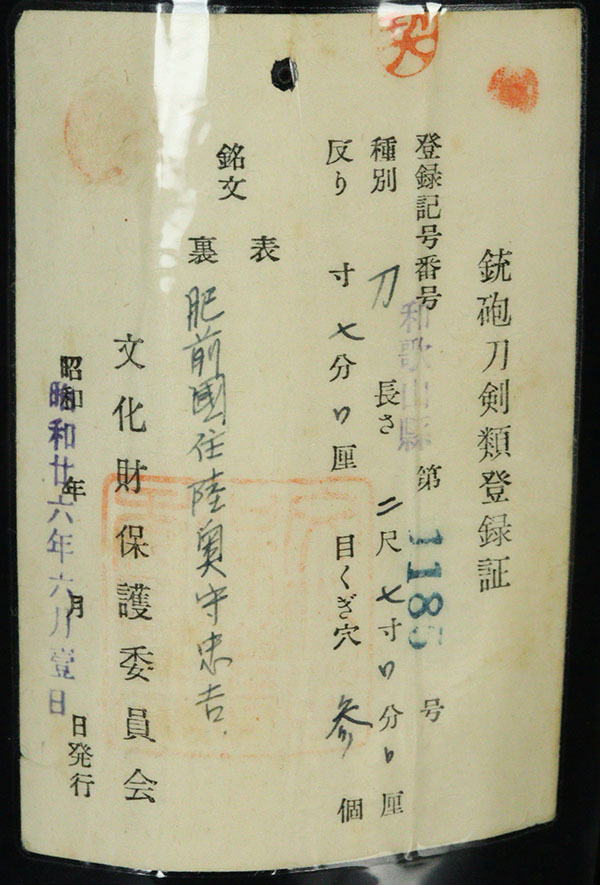 銃砲刀剣類登録証
登録記号番号 和歌山縣 第 1185 号
種別 刀 長さ 二尺七寸 分 厘
反り 寸七分 厘 目くぎ穴 参個
銘文
表
裏 肥前國住陸奥守忠吉
文化財保護委員会
昭和 年 月 日発行
昭和廿六年六月壹日